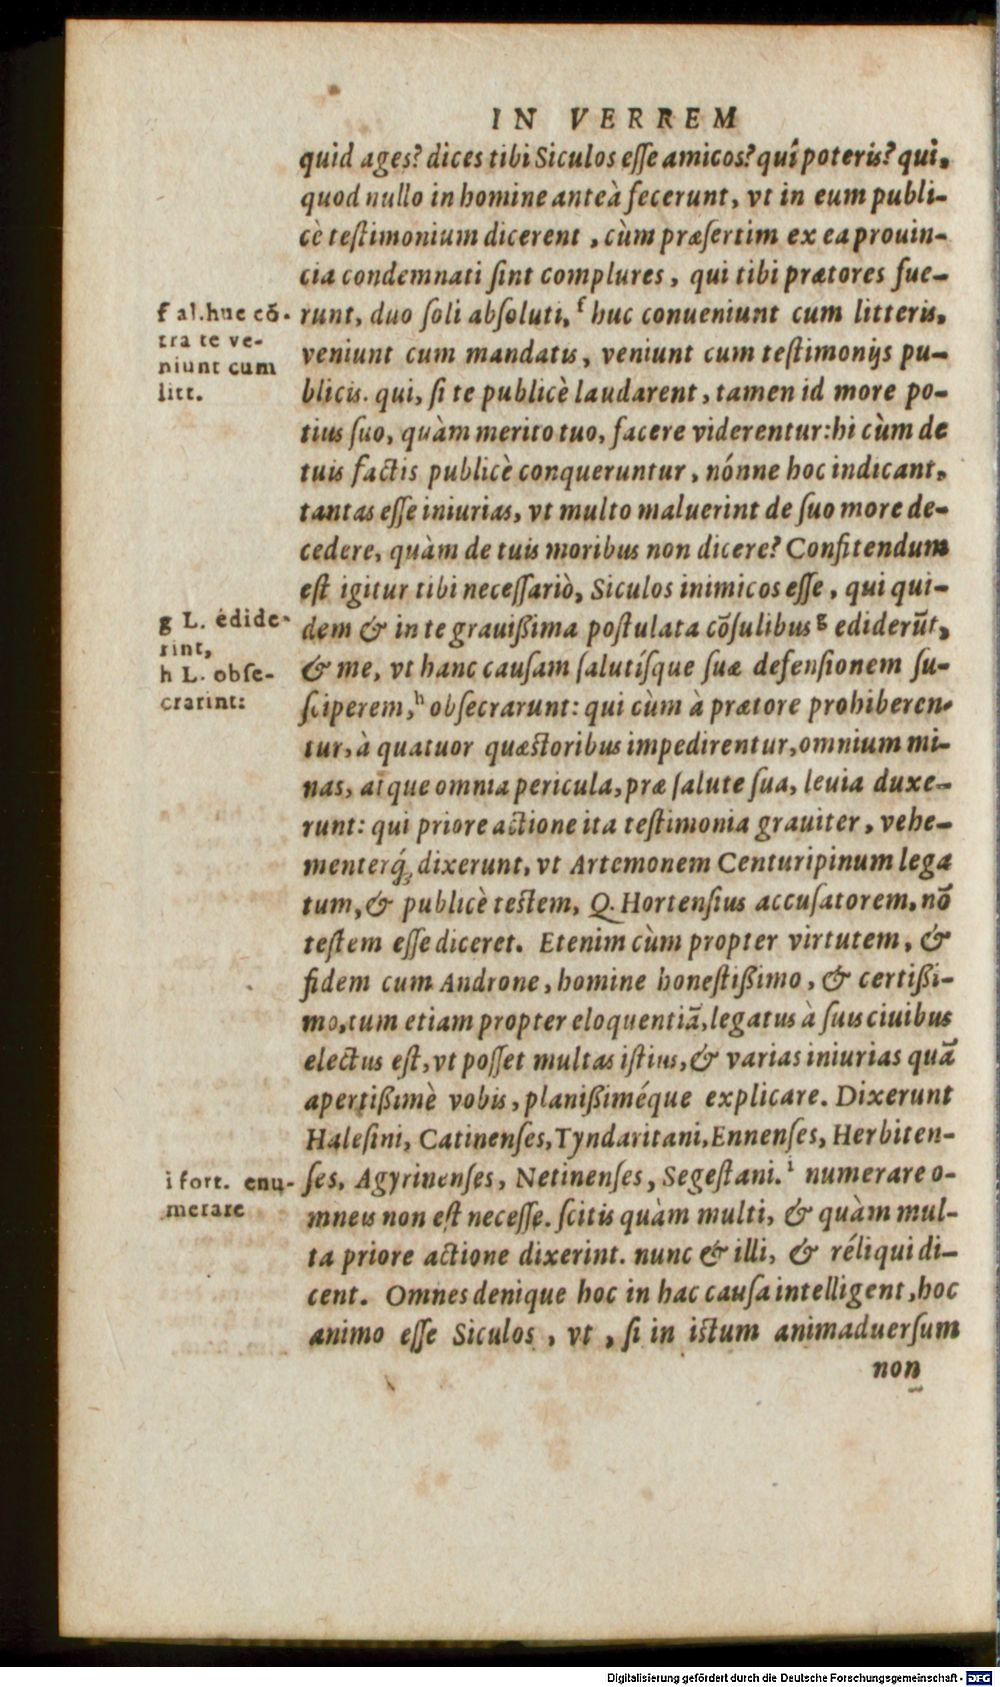 IN VERREM
quid ages? dices tibi Siculos esse amicos? quî poteris? qui,
quod nullo in homine anteà fecerunt, vt in eum publi-
cè testimonium dicerent, cùm præsertim ex ea prouin-
cia condemnati sint complures, qui tibi prætores fue-
runt, duo soli absoluti, f huc conueniunt cum litteris,
veniunt cum mandatis, veniunt cum testimonijs pu-
blicis. qui, si te publicè laudarent, tamen id more po-
tius suo, quàm merito tuo, facere viderentur: hi cùm de
tuis factis publicè conqueruntur, nónne hoc indicant,
tantas esse iniurias, vt multo maluerint de suo more de-
cedere, quàm de tuis moribus non dicere? Confitendum
est igitur tibi necessariò, Siculos inimicos esse, qui qui-
dem & in te grauißima postulata cõsulibus g ediderũt,
& me, vt hanc causam salutísque suæ defensionem su-
sciperem, h obsecrarunt: qui cùm à prætore prohiberen-
tur, à quatuor quæstoribus impedirentur, omnium mi-
nas, atque omnia pericula, præ salute sua, leuia duxe-
runt: qui priore actione ita testimonia grauiter, vehe-
menterq́; dixerunt, vt Artemonem Centuripinum lega
tum, & publicè testem, Q. Hortensius accusatorem, nõ
testem esse diceret. Etenim cùm propter virtutem, &
fidem cum Androne, homine honestißimo, & certißi-
mo, tum etiam propter eloquentiã, legatus à suis ciuibus
electus est, vt posset multas istius, & varias iniurias quã
apertißimè vobis, planißiméque explicare. Dixerunt
Halesini, Catinenses, Tyndaritani, Ennenses, Herbiten-
ses, Agyrinenses, Netinenses, Segestani. i numerare o-
mneis non est necesse. scitis quàm multi, & quàm mul-
ta priore actione dixerint. nunc & illi, & réliqui di-
cent. Omnes denique hoc in hac causa intelligent, hoc
animo esse Siculos, vt, si in istum animaduersum
non
f al. huc cõ-
tra te ve-
niunt cum
litt.
g L. édide-
rint,
h L. obse-
crarint:
i fort. enu-
merare
Digitalisierung gefördert durch die Deutsche Forschungsgemeinschaft - DFG